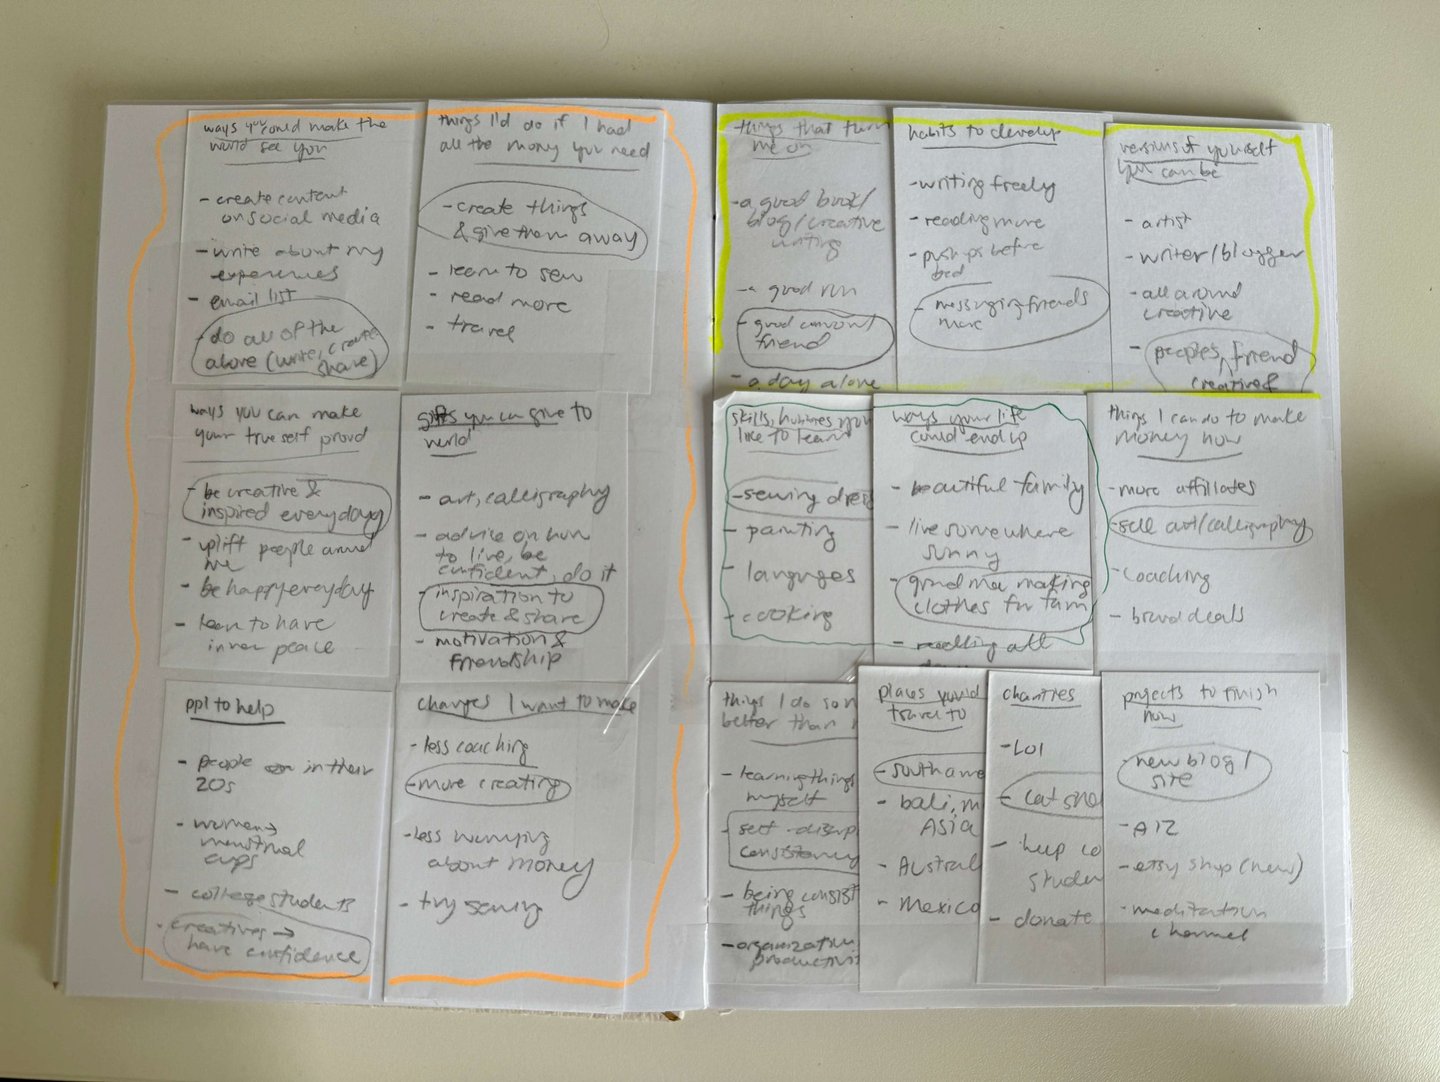 ways you could make the
world see you
- create content
on social media
- write about my
experiences
- email list
- do all of the
above (write, create,
share)
things I'd do if I had
all the money you need
- create things
& give them away
- learn to sew
- read more
- travel
ways you can make
your true self proud
- be creative &
inspired everyday
- uplift people around
me
- be happy everyday
- learn to have
inner peace
gifts you can give to
world
- art, calligraphy
- advice on how
to live, be
confident, do it
- inspiration to
create & share
- motivation &
friendship
ppl to help
- people in their
20s
- women →
menstrual
cups
- college students
- creatives →
have confidence
changes I want to make
- less coaching
- more creating
- less worrying
about money
- try sewing
things that turn
me on
- a good book/
blog/creative
writing
- a good run
- good convo w/
friend
- a day alone
habits to develop
- writing freely
- reading more
- pushups before
bed
- messaging friends
more
versions of yourself
you can be
- artist
- writer/blogger
- all around
creative
- people's friend
creative &
skills, hobbies you
like to learn
- sewing dres
- painting
- languages
- cooking
ways your life
could end up
- beautiful family
- live somewhere
sunny
- grandma making
clothes for fam
- all
things I can do to make
money now
- more affiliates
- sell art/calligraphy
- coaching
- brand deals
things I do so
better than
- learning things
myself
- self-discip
consistency
- being consist
things
- organization
productivi
places you'd
travel to
- south ame
- bali, m
ASIA
- Australi
- Mexico
charities
- LOI
- cat she
- help co
studen
- donate
projects to finish
now
- new blog/
site
- etsy shop (new)
- meditation
channel